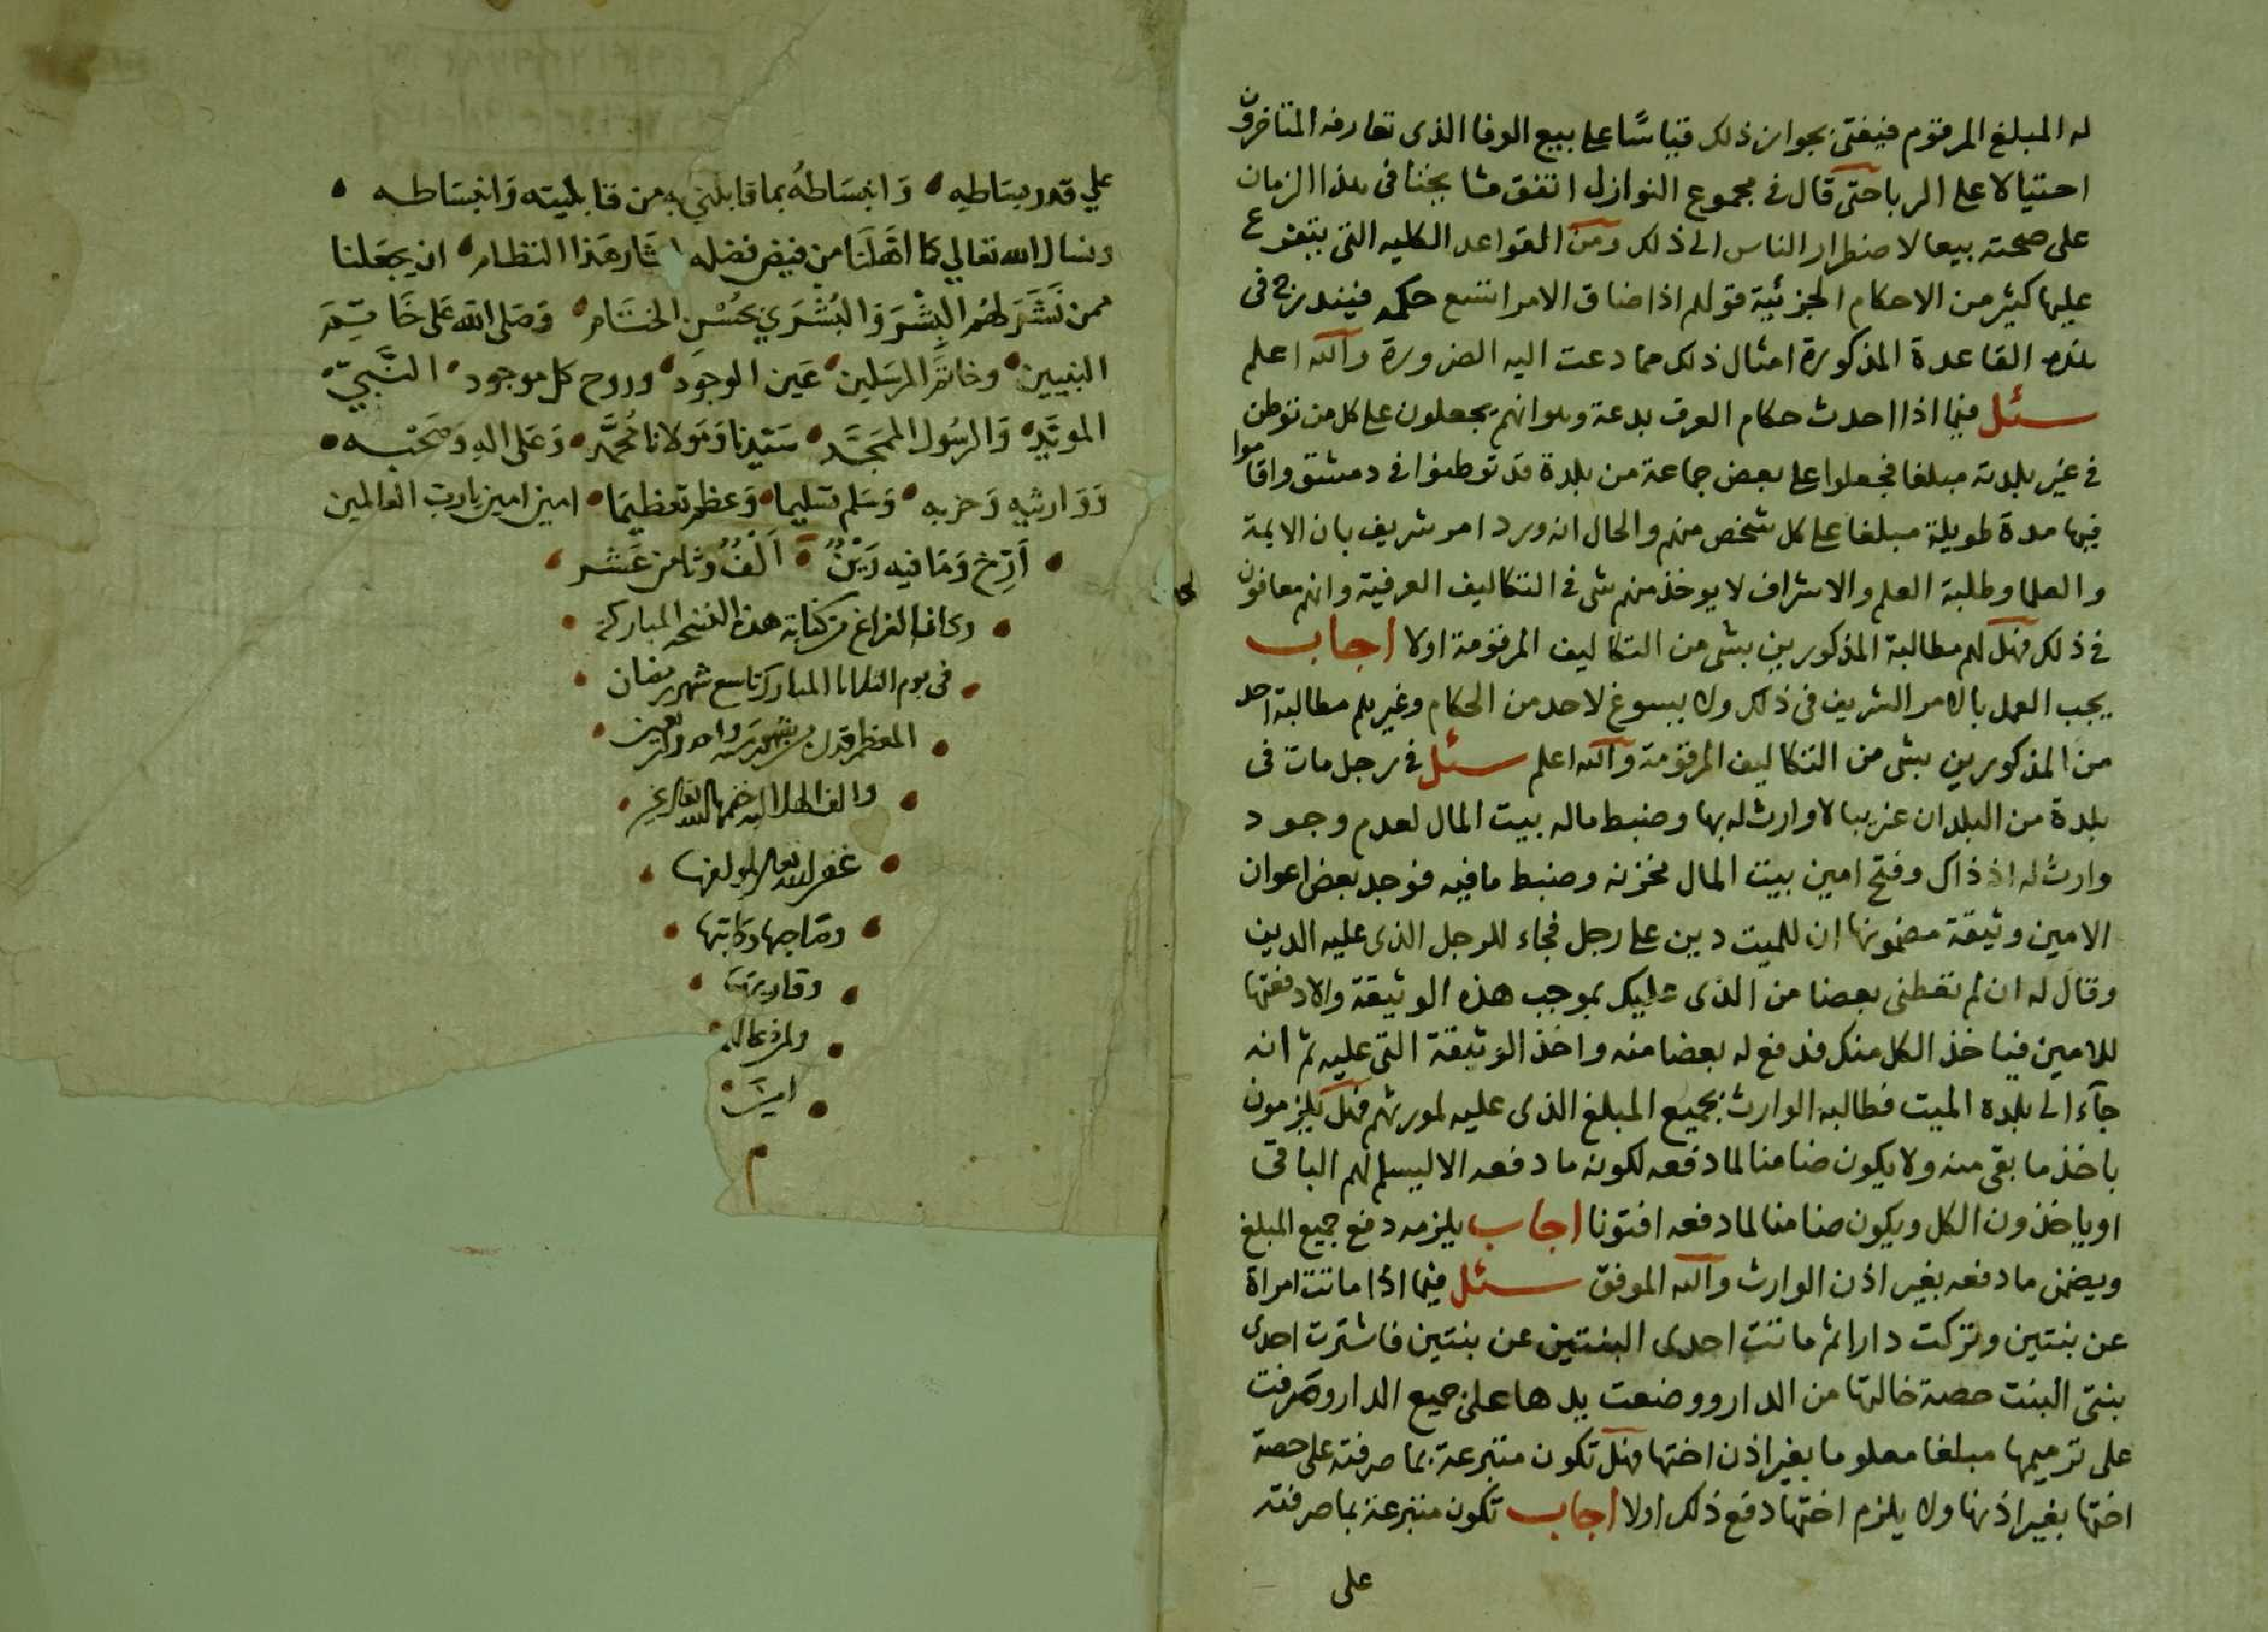 له المبلغ المرقوم فيفتى بجواز ذلك قياسًا على بيع الوفا الذى تعارفه المتاخرون
احتيالا على الربا حتى قال فى مجموع النوازل اتفق مشايخنا فى هذا الزمان
على صحته بيعا لاضطرار الناس الى ذلك ومن القواعد الكليه التى يتفرع
عليها كثير من الاحكام الجزئية قولهم اذا ضاق الامر اتسع حكمه فيندرج فى
هذه القاعدة المذكورة امثال ذلك مما دعت اليه الضرورة والله اعلم
سئل فيما اذا احدث حكام العرف بدعة وهو انهم يجعلون على كل من توطن
فى غير بلدته مبلغا فجعلوا على بعض جماعة من بلدة قد توطنوا فى دمشق واقاموا
فيها مدة طويلة مبلغا على كل شخص منهم والحال انه ورد امر شريف بان الايمة
والعلما وطلبة العلم والاشراف لا يوخذ منهم شى فى التكاليف العرفية وانهم معافون
فى ذلك فهل لهم مطالبة المذكورين بشى من التكاليف المرقومة اولا اجاب
يجب العمل بالامر الشريف فى ذلك ولا يسوغ لاحد من الحكام وغيرهم مطالبة احد
من المذكورين بشى من التكاليف المرقومة والله اعلم سئل فى رجل مات فى
بلدة من البلدان غريبا لا وارث له بها وضبط ماله بيت المال لعدم وجود
وارث له اذ ذاك وفتح امين بيت المال مخزنه وضبط ما فيه فوجد بعض اعوان
الامين وثيقة مضمونها ان للميت دين على رجل فجاء للرجل الذى عليه الدين
وقال له ان لم تعطنى بعضا من الذى عليك بموجب هذه الوثيقة والا دفعتها
للامين فياخذ الكل منك فدفع له بعضا منه واخذ الوثيقة التى عليه ثم انه
جآء الى بلده الميت فطالبه الوارث بجميع المبلغ الذى عليه لمورثهم فهل يلزمون
باخذ ما بقى منه ولا يكون ضامنا لما دفعه لكونه ما دفعه الا ليسلم لهم الباقى
او ياخذون الكل ويكون ضامنا لما دفعه افتونا اجاب يلزمه دفع جميع المبلغ
ويضمن ما دفعه بغير اذن الوارث والله الموفق سئل فيما اذا ماتت امراة
عن بنتين وتركت دارا ثم ماتت احدى البنتين عن بنتين فاشترت احدى
بنتى البنت حصة خالتها من الدار ووضعت يدها على جميع الدار وصرفت
على ترميمها مبلغا معلوما بغير اذن اختها فهل تكون متبرعة بما صرفته على حصة
اختها بغير اذنها ولا يلزم اختها دفع ذلك اولا اجاب تكون متبرعة بما صرفته
على
علي قدر بساطه وانبساطه بما قابلني به من قابليته وانبساطه
ونسال الله تعالي كما اهلنا من فيض فضله لثار هذا النظام ان يجعلنا
ممن نَشَر لهم البِشْرَ وَالبُشرَي بحُسْن الختام وصلى الله على خاتمة
النبيين وخاتم المرسلين عين الوجود وروح كل موجود النَّبيّ
المويّد وَالرسُول الممجَّد سَيّدنا وَمَولانا مُحمَّد وَعَلى اله وَصَحبه
وَوَارثيه وَحزبه وَسَلم تسليما وَعظم تعظيما امين امين يارب العالمين
اَرِّخ وَمَا فيه رَيْنٌ اَلْفٌ وثامن عَشر
وكان الفراغ من كتابة هذه النسخه المباركه
فى يوم الثلاثا المبارك تاسع شهر رمضان
المعظم قدره من شهور سنه واحد واربعين
والف الهلاليه ختمها الله تعالى بخير
غفر الله تعالى لمولفها
وصاحبها وكاتبها
وقاريها
ولمن دعا له
امين
م